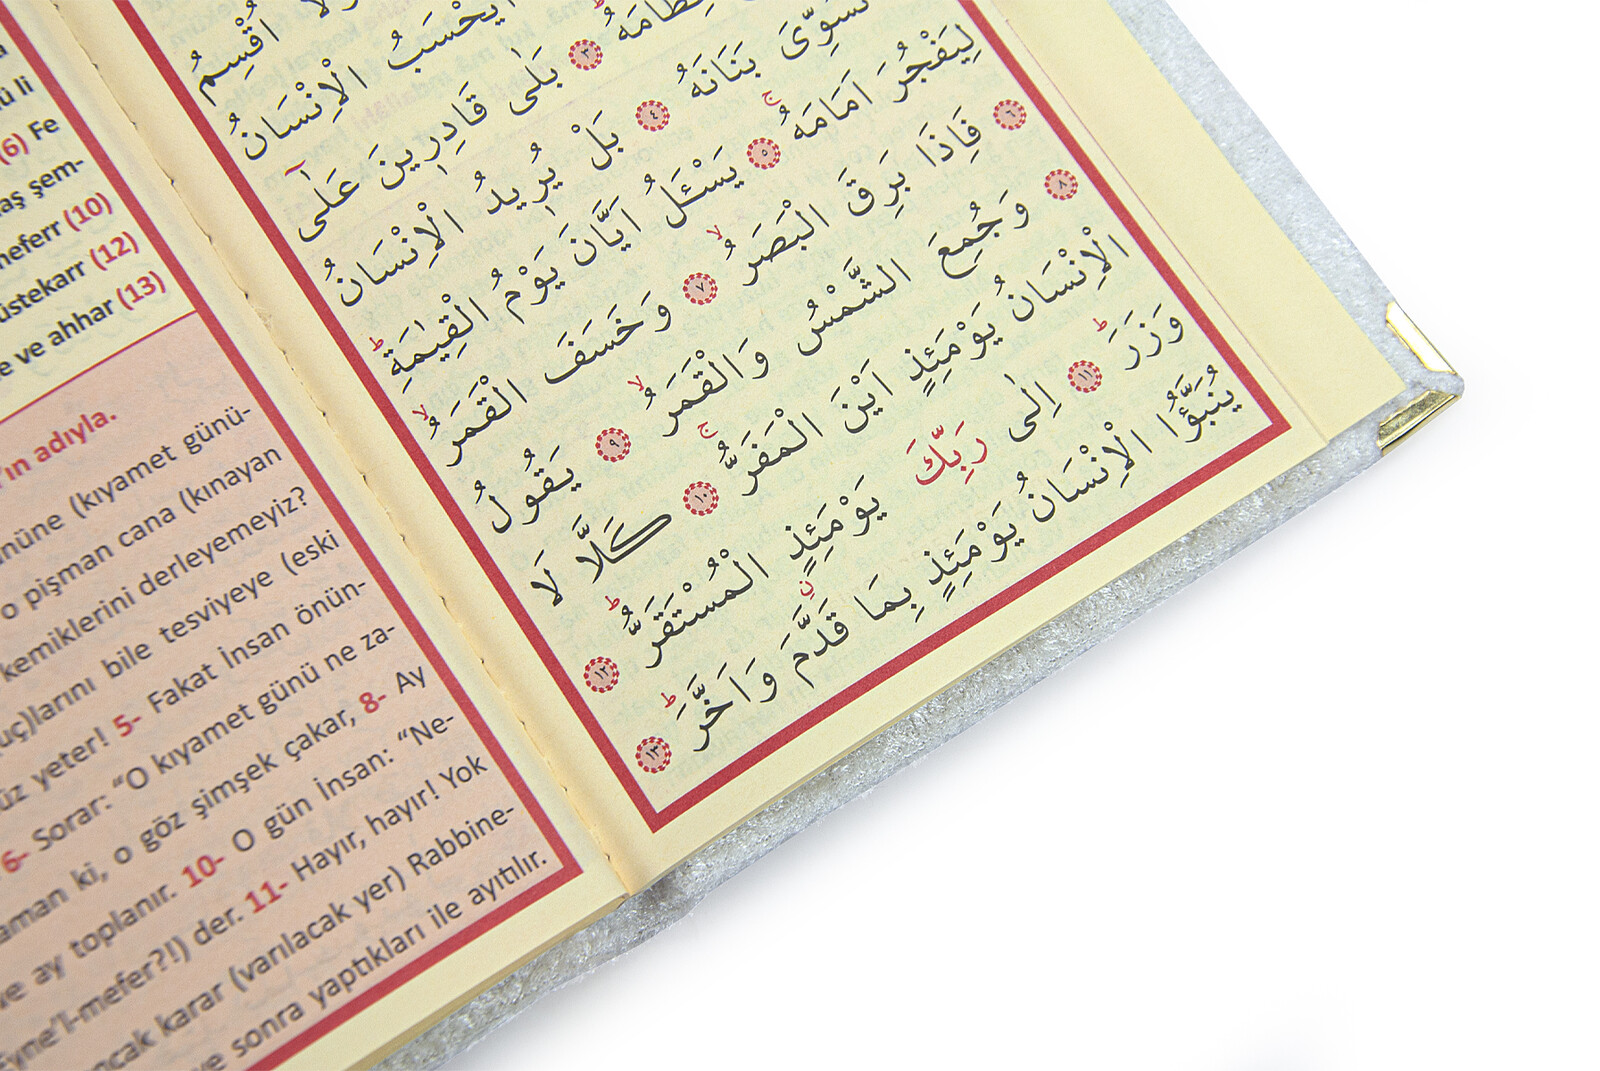 ü li
(6) Fe
aş şem-
neferr (10)
üstekarr (12)
e ve ahhar (13)
'ın adıyla.
nüne (kıyamet günü-
o pişman cana (kınayan
kemiklerini derleyemeyiz?
uç)larını bile tesviyeye (eski
üz yeter! 5- Fakat İnsan önün-
6- Sorar: “O kıyamet günü ne za-
aman ki, o göz şimşek çakar, 8- Ay
ve ay toplanır. 10- O gün İnsan: “Ne-
Eyne'l-mefer?!) der. 11- Hayır, hayır! Yok
ancak karar (varılacak yer) Rabbine-
ve sonra yaptıkları ile ayıtılır.
اُقْسِمُ
اَيَحْسَبُ الْاِنْسَانُ
عِظَامَهُ ٣ بَلٰى قَادِرٖينَ عَلٰٓى
نُسَوِّىَ بَنَانَهُ ٤ بَلْ يُرٖيدُ الْاِنْسَانُ
لِيَفْجُرَ اَمَامَهُ ۚ ٥ يَسْـَٔلُ اَيَّانَ يَوْمُ الْقِيٰمَةِ ۜ
٦ فَاِذَا بَرِقَ الْبَصَرُ ۙ ٧ وَخَسَفَ الْقَمَرُ ۙ
٨ وَجُمِعَ الشَّمْسُ وَالْقَمَرُ ۙ ٩ يَقُولُ
الْاِنْسَانُ يَوْمَئِذٍ اَيْنَ الْمَفَرُّ ۚ ١٠ كَلَّا لَا
وَزَرَ ۜ ١١ اِلٰى رَبِّكَ يَوْمَئِذٍ الْمُسْتَقَرُّ ۜ ١٢
يُنَبَّؤُا الْاِنْسَانُ يَوْمَئِذٍ بِمَا قَدَّمَ وَاَخَّرَ ۜ ١٣